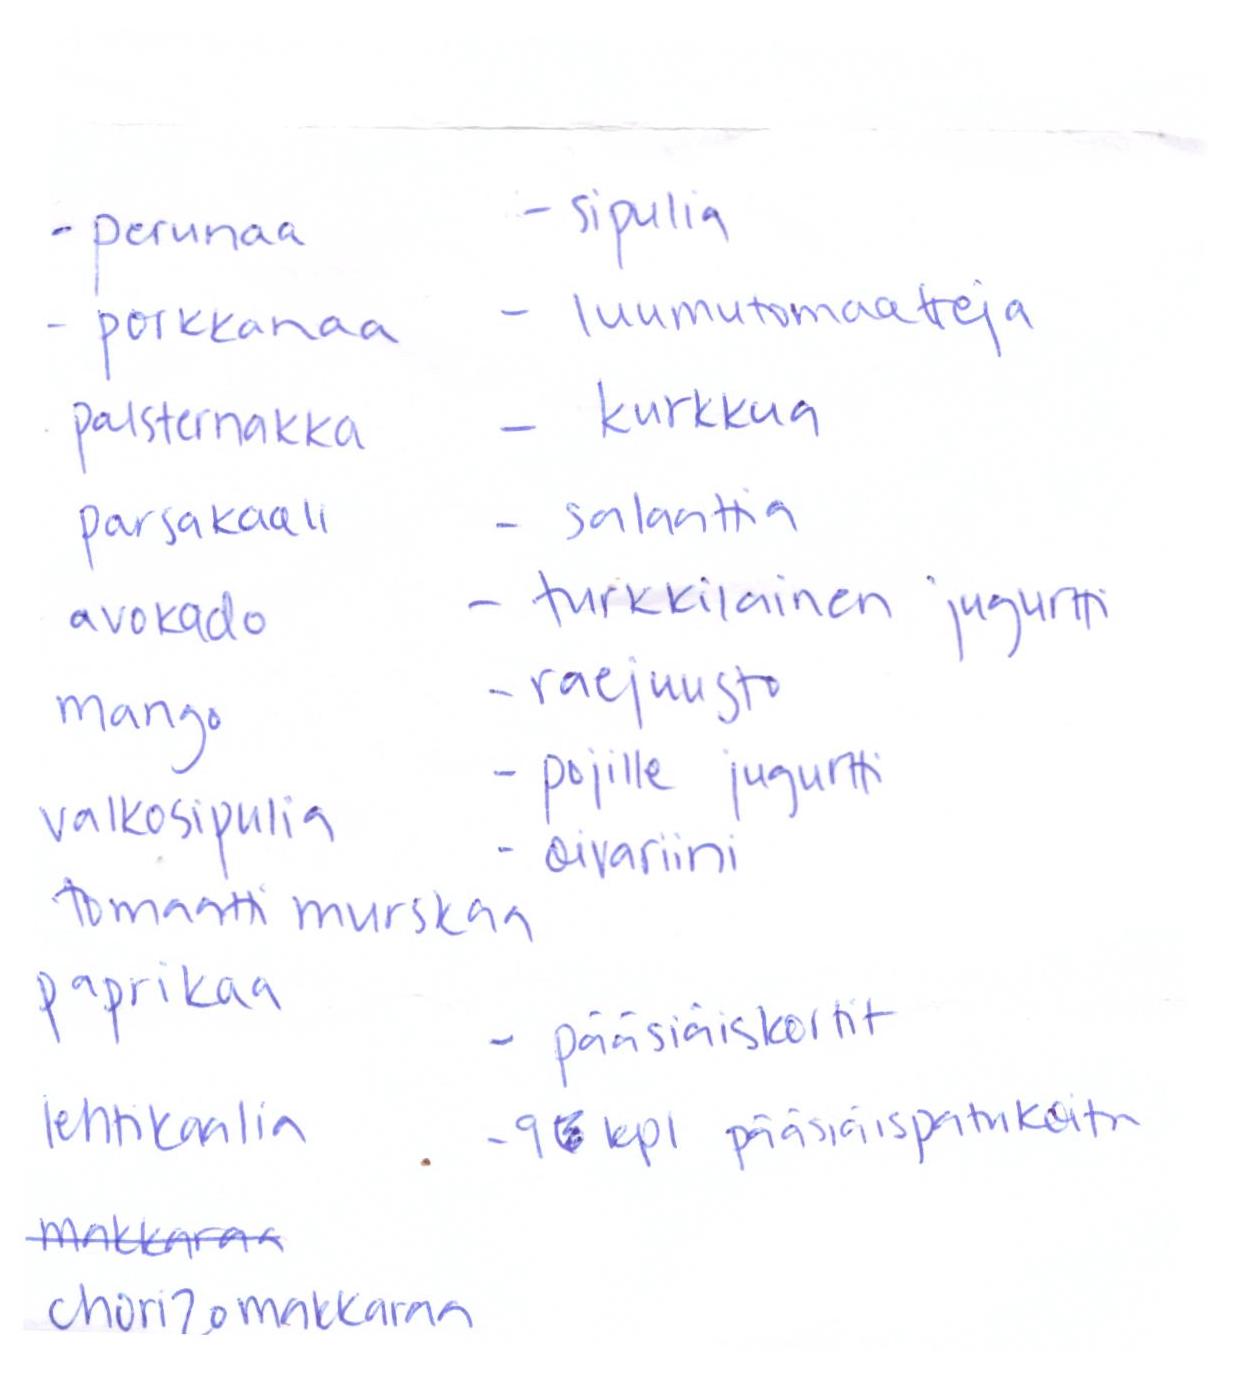 - perunaa
- porkkanaa
palsternakka
parsakaali
avokado
mango
valkosipulia
tomaatti murskaa
paprikaa
lehtikaalia
makkaraa
chorizomakkaraa
- sipulia
- luumutomaatteja
- kurkkua
- salaattia
- turkkilainen jugurtti
- raejuusto
- pojille jugurtti
- oivariini
- pääsiäiskortit
- kpl pääsiäispatukoita